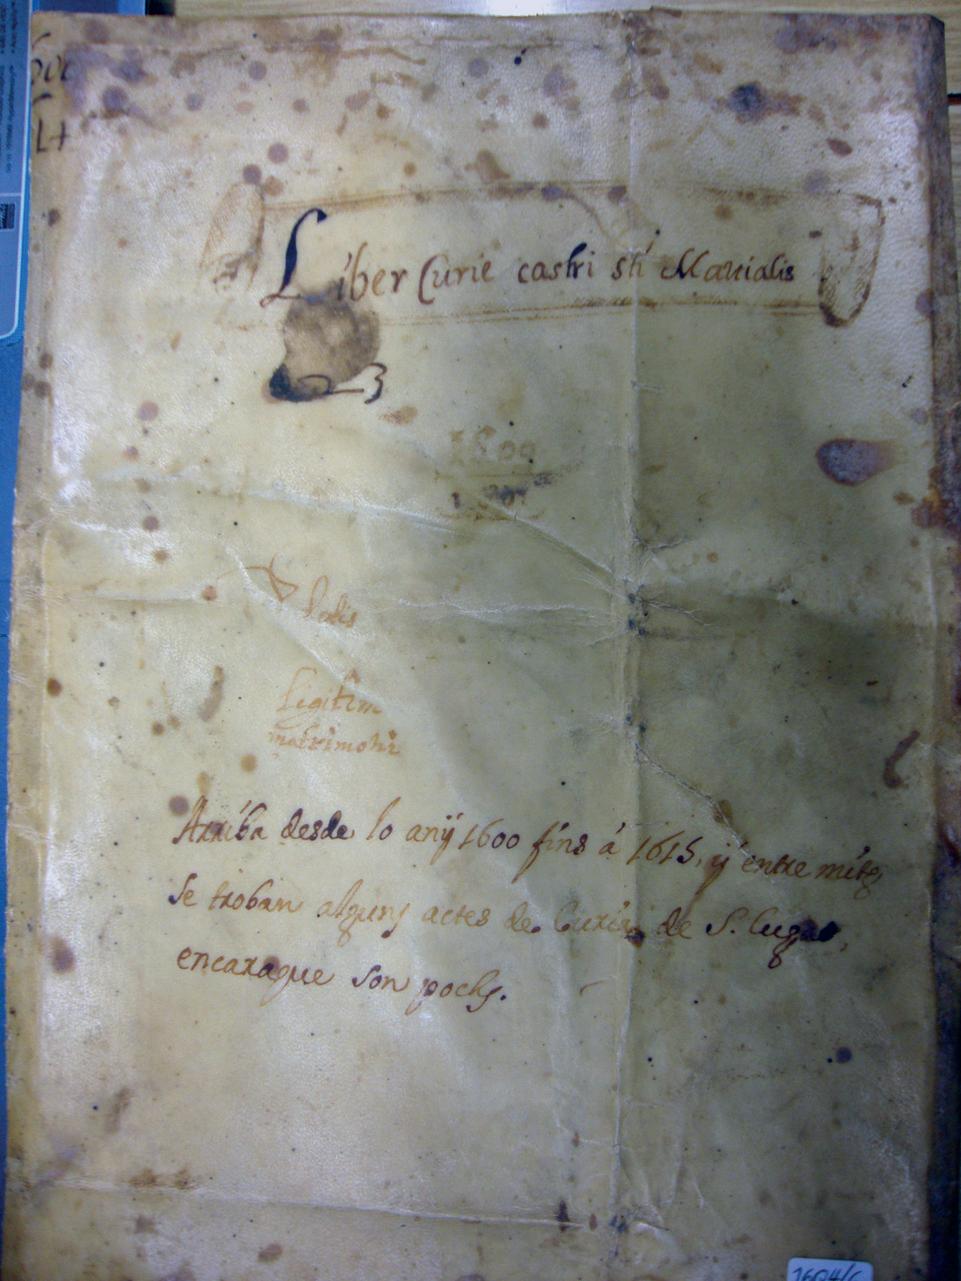 Liber Curie castri sti Martialis
1600
Legitim
matrimoni
Arriba desde lo anÿ 1600 fins á 1615, ÿ entre mitg,
se troban alguns actes de Curia de S. Cugat,
encaraque son pochs.